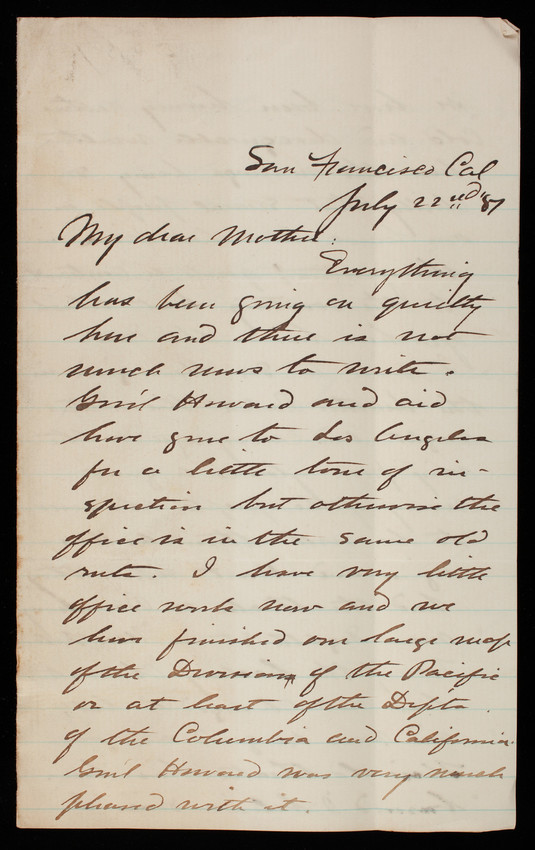 San Francisco Cal
July 22nd '87
My dear Mother:
Everything
has been going on quietly
here and there is not
much news to write.
Gen'l Howard and aid
have gone to Los Angeles
for a little tour of in-
spection but otherwise the
office is in the same old
ruts. I have very little
office work now and we
have finished our large map
of the Division of the Pacific
or at least of the Depts.
of the Columbia and California.
Gen'l Howard was very much
pleased with it.